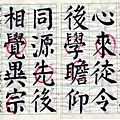 心來徒令
後學瞻仰
同源先後
相覺異宗